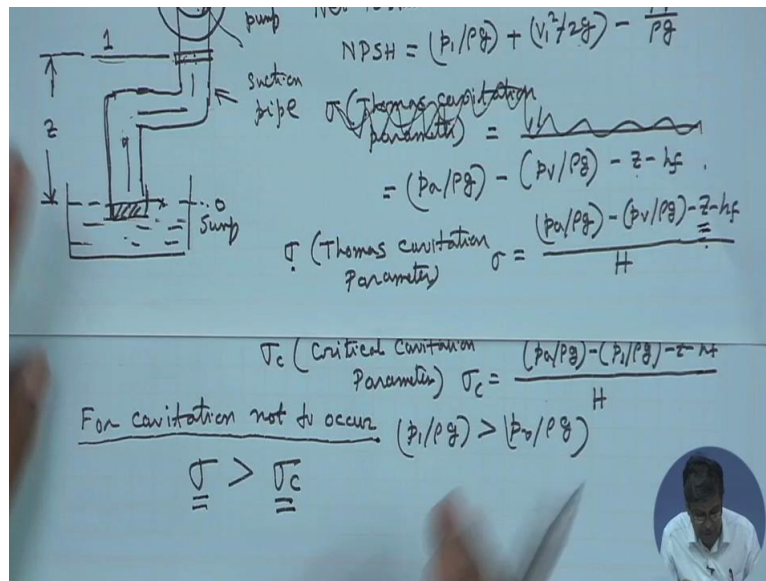 pump
NPSH = (p₁/ρg) + (V₁²/2g) - pv/ρg
1
suction
pipe
z
σ (Thomas cavitation
parameter) =
= (pa/ρg) - (pv/ρg) - z - hf .
0
Sump
σ (Thomas cavitation
Parameter) σ = (pa/ρg) - (pv/ρg) - z - hf
H
σc (Critical Cavitation
Parameter) σc = (pa/ρg) - (p₁/ρg) - z - hf
H
For cavitation not to occur (p₁/ρg) > (pv/ρg)
σ > σc